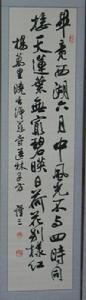 畢竟西湖六月中風光不与四時同
接天蓮葉無窮碧映日荷花別樣紅
楊萬里曉出淨慈寺送林子方